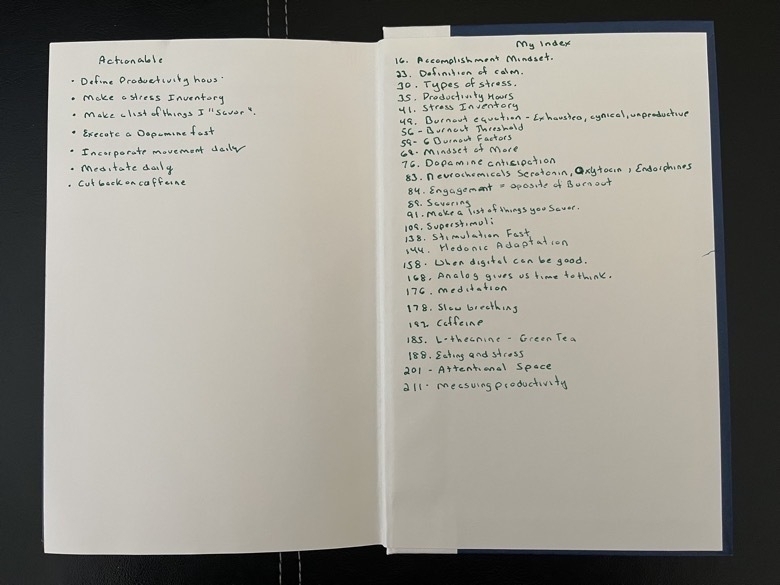 Actionable
• Define Productivity hous.
• Make a stress Inventory
• Make a list of things I "Savor".
• Execute a Dopamine fast
• Incorporate movement daily
• Meditate daily
• Cut back on caffeine
My Index
16. Accomplishment Mindset.
23. Definition of calm.
30. Types of stress.
35. Productivity Hours
41. Stress Inventory
49. Burnout equation - Exhausted, cynical, unproductive
56 - Burnout Threshold
59 - 6 Burnout Factors
69. Mindset of More
76. Dopamine anticipation
83. Neurochemicals Serotonin, Oxytocin, Endorphines
84. Engagement = oposite of Burnout
89. Savoring
91. Make a list of things you Savor.
109. Superstimuli
138. Stimulation Fast
144. Hedonic Adaptation
158. When digital can be good.
168. Analog gives us time to think.
176. Meditation
178. Slow breathing
192. Caffeine
185. L-theanine - Green Tea
188. Eating and stress
201 - Attentional Space
211 - Mecsuing productivity